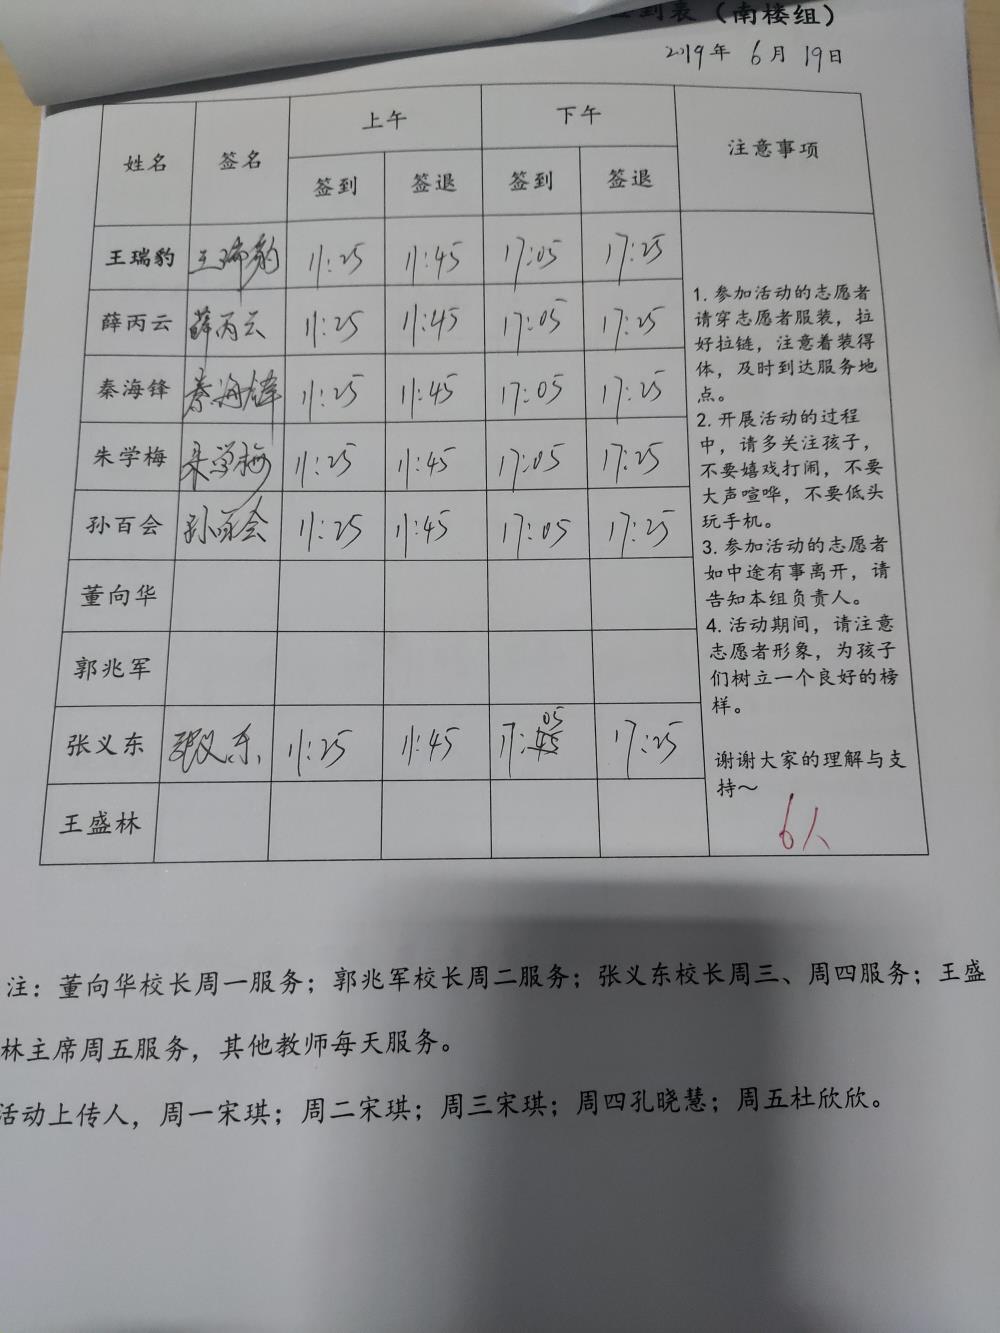 到表（南楼组）
2019年 6月 19日
姓名 签名 上午 下午 注意事项
签到 签退 签到 签退
王瑞豹 王瑞豹 11:25 11:45 17:05 17:25
薛丙云 薛丙云 11:25 11:45 17:05 17:25
秦海锋 秦海锋 11:25 11:45 17:05 17:25
朱学梅 朱学梅 11:25 11:45 17:05 17:25
孙百会 孙百会 11:25 11:45 17:05 17:25
董向华
郭兆军
张义东 张义东 11:25 11:45 17:05 17:25
王盛林
1. 参加活动的志愿者
请穿志愿者服装，拉
好拉链，注意着装得
体，及时到达服务地
点。
2. 开展活动的过程
中，请多关注孩子，
不要嬉戏打闹，不要
大声喧哗，不要低头
玩手机。
3. 参加活动的志愿者
如中途有事离开，请
告知本组负责人。
4. 活动期间，请注意
志愿者形象，为孩子
们树立一个良好的榜
样。
谢谢大家的理解与支
持～
6人
注：董向华校长周一服务；郭兆军校长周二服务；张义东校长周三、周四服务；王盛
林主席周五服务，其他教师每天服务。
活动上传人，周一宋琪；周二宋琪；周三宋琪；周四孔晓慧；周五杜欣欣。